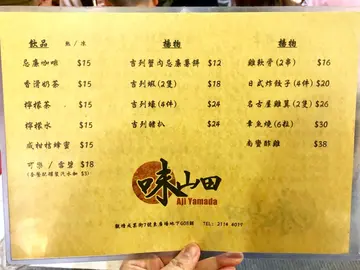 飲品 熱/凍
忌廉咖啡 $15
香滑奶茶 $15
檸檬茶 $15
檸檬水 $15
咸柑桔蜂蜜 $15
可樂/雪碧 $18
揚物
吉列蟹肉忌廉薯餅 $12
吉列蝦(2隻) $18
吉列蠔(4件) $24
吉列豬扒 $24
揚物
雞軟骨(2串) $16
日式炸餃子(4件) $20
名古屋雞翼(2隻) $26
章魚燒(6粒) $30
南蠻醉雞 $38
味山田
Aji Yamada
TEL: 2114 4039